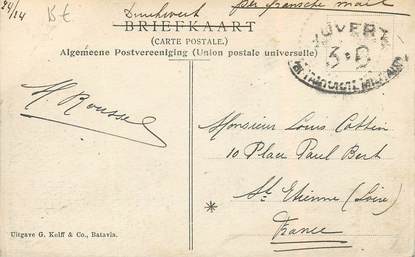 24/14
Drukwerk
per fransche mail
BRIEFKAART
(CARTE POSTALE.)
Algemeene Postvereeniging (Union postale universelle)
OUVERT
3·D
H. Roussel
Monsieur Louis Cottin
10 Place Paul Bert
St Etienne (Loire)
France
Uitgave G. Kolff & Co., Batavia.